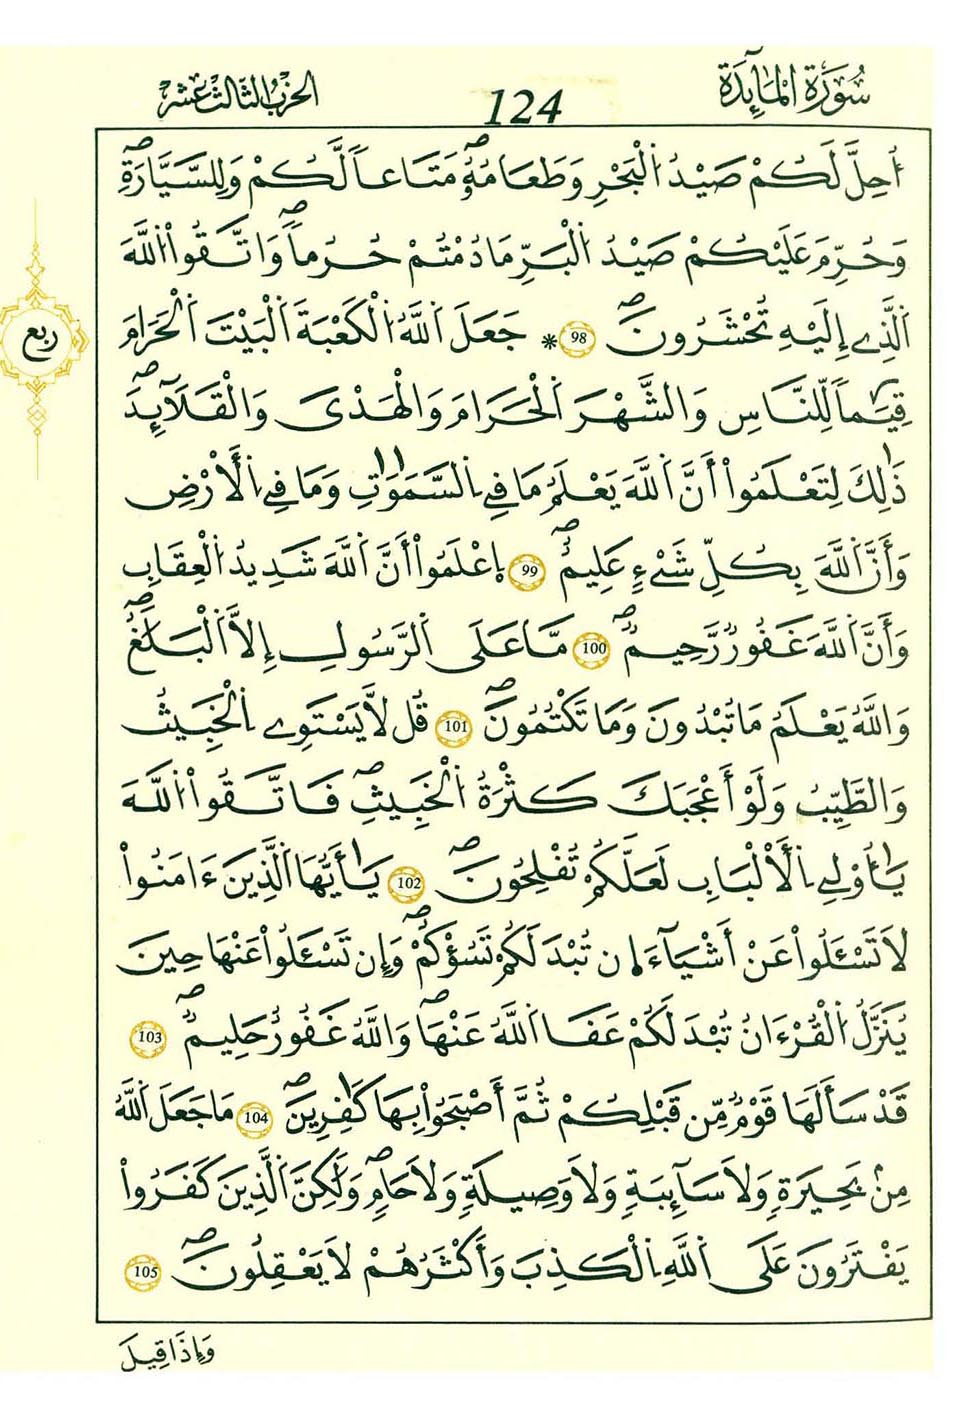 سُورَةُ الْمَائِدَةِ 124 الحزب الثالث عشر
أُحِلَّ لَكُمْ صَيْدُ اُ۬لْبَحْرِ وَطَعَامُهُۥ مَتَٰعاٗ لَّكُمْ وَلِلسَّيَّارَةِۖ
وَحُرِّمَ عَلَيْكُمْ صَيْدُ اُ۬لْبَرِّ مَا دُمْتُمْ حُرُماٗۖ وَاتَّقُواْ اُ۬للَّهَ
اَ۬لذِےٓ إِلَيْهِ تُحْشَرُونَۖ 98 * جَعَلَ اَ۬للَّهُ اُ۬لْكَعْبَةَ اَ۬لْبَيْتَ اَ۬لْحَرَامَ
قِيَٰماٗ لِّلنَّاسِ وَالشَّهْرَ اَ۬لْحَرَامَ وَالْهَدْىَ وَالْقَلَٰٓئِدَۖ
ذَٰلِكَ لِتَعْلَمُوٓاْ أَنَّ اَ۬للَّهَ يَعْلَمُ مَا فِے اِ۬لسَّمَٰوَٰتِ وَمَا فِے اِ۬لْأَرْضِ
وَأَنَّ اَ۬للَّهَ بِكُلِّ شَےْءٍ عَلِيمٌۖ 99 اِ۪عْلَمُوٓاْ أَنَّ اَ۬للَّهَ شَدِيدُ اُ۬لْعِقَابِ
وَأَنَّ اَ۬للَّهَ غَفُورٞ رَّحِيمٞۖ 100 مَّا عَلَى اَ۬لرَّسُولِ إِلَّا اَ۬لْبَلَٰغُۖ
وَاللَّهُ يَعْلَمُ مَا تُبْدُونَ وَمَا تَكْتُمُونَۖ 101 قُل لَّا يَسْتَوِے اِ۬لْخَبِيثُ
وَالطَّيِّبُ وَلَوْ أَعْجَبَكَ كَثْرَةُ اُ۬لْخَبِيثِۖ فَاتَّقُواْ اُ۬للَّهَ
يَٰٓأُوْلِے اِ۬لْأَلْبَٰبِ لَعَلَّكُمْ تُفْلِحُونَۖ 102 يَٰٓأَيُّهَا اَ۬لذِينَ ءَامَنُواْ
لَا تَسْـَٔلُواْ عَنْ أَشْيَآءَ ا۪ن تُبْدَ لَكُمْ تَسُؤْكُمْۖ وَإِن تَسْـَٔلُواْ عَنْهَا حِينَ
يُنَزَّلُ اُ۬لْقُرْءَانُ تُبْدَ لَكُمْ عَفَا اَ۬للَّهُ عَنْهَاۖ وَاللَّهُ غَفُورٌ حَلِيمٞۖ 103
قَدْ سَأَلَهَا قَوْمٞ مِّن قَبْلِكُمْ ثُمَّ أَصْبَحُواْ بِهَا كَٰفِرِينَۖ 104 مَا جَعَلَ اَ۬للَّهُ
مِنۢ بَحِيرَةٖ وَلَا سَآئِبَةٖ وَلَا وَصِيلَةٖ وَلَا حَامٖۖ وَلَٰكِنَّ اَ۬لذِينَ كَفَرُواْ
يَفْتَرُونَ عَلَى اَ۬للَّهِ اِ۬لْكَذِبَ وَأَكْثَرُهُمْ لَا يَعْقِلُونَۖ 105
وَإِذَا قِيلَ
ربع